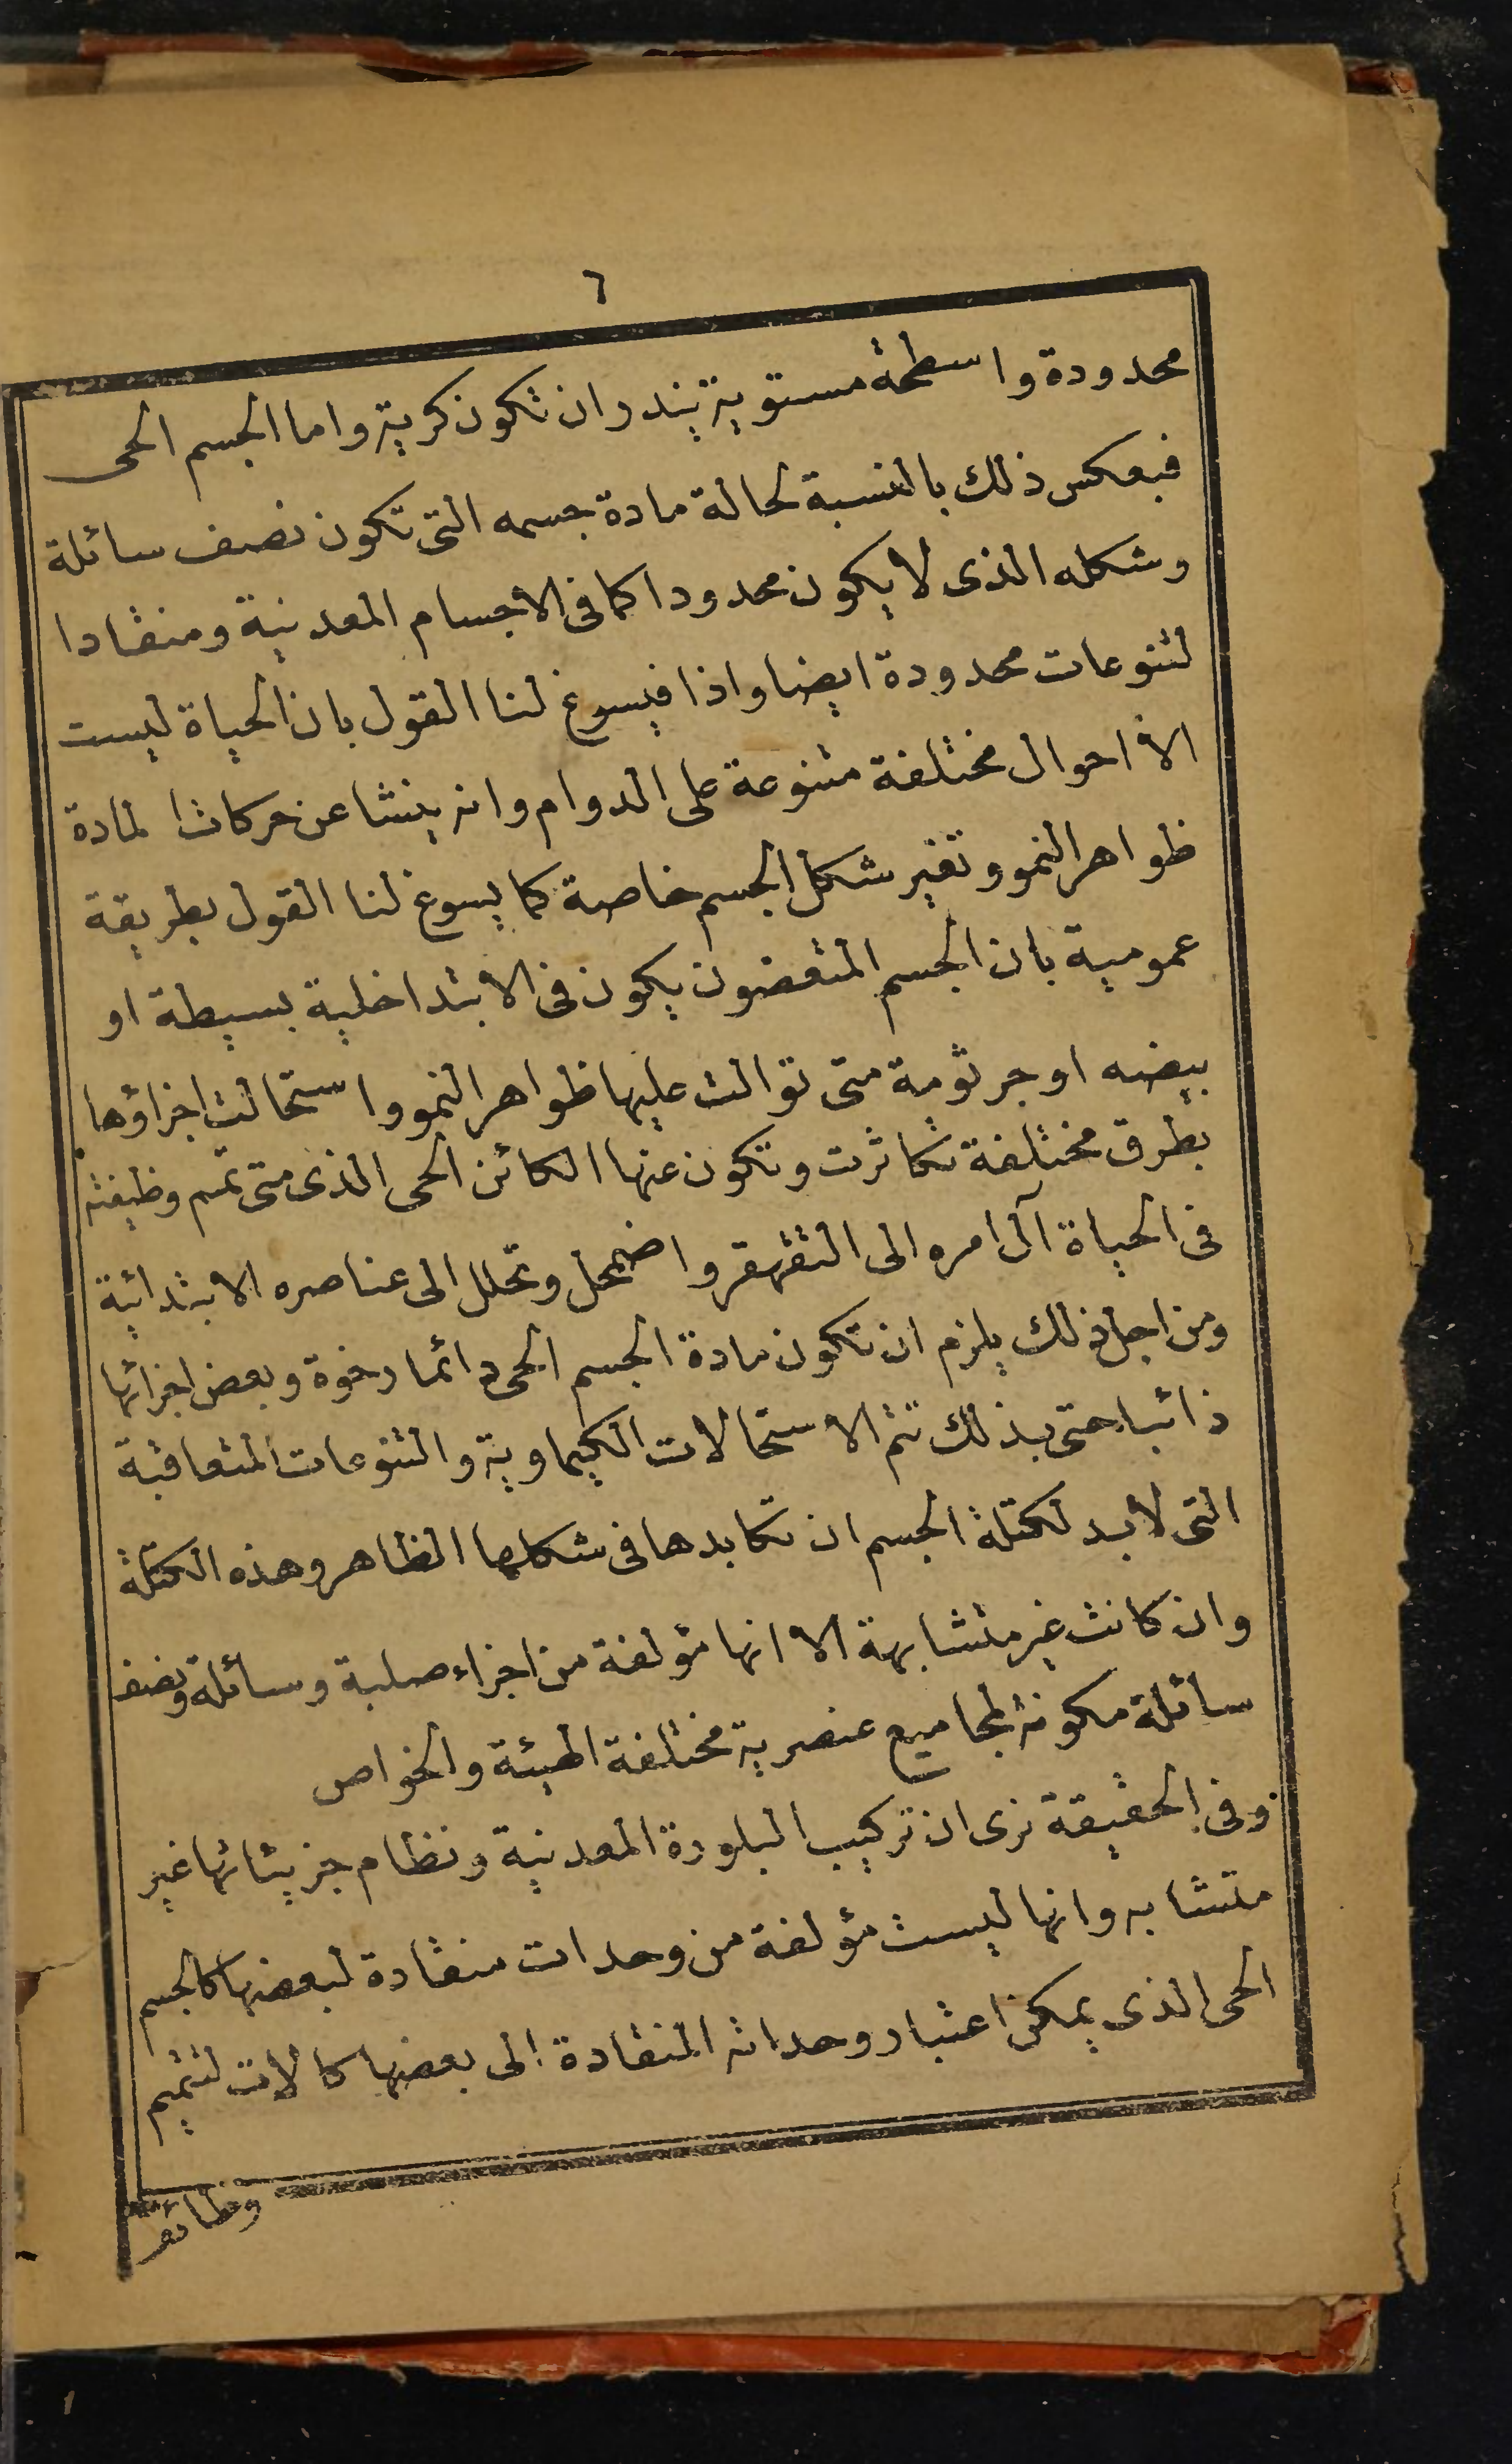 ٦
محدودة واسطحة مستوية يندر ان تكون كرية واما الجسم الحى
فبعكس ذلك بالنسبة لحالة مادة جسمه التى تكون نصف سائلة
وشكله الذى لا يكون محدودا كما فى الاجسام المعدنية ومنقادا
لتنوعات محدودة ايضا واذا فيسوغ لنا القول بان الحياة ليست
الا احوال مختلفة متنوعة على الدوام وانه ينشا عن حركات المادة
ظواهر النمو وتغير شكل الجسم خاصة كما يسوغ لنا القول بطريقة
عمومية بان الجسم المتعضون يكون فى الابتداخلية بسيطة او
بيضه او جرثومة متى توالت عليها ظواهر النمو واستحالت اجزاؤها
بطرق مختلفة تكاثرت وتكون عنها الكائن الحى الذى متى تمم وظيفته
فى الحياة آل امره الى التقهقر واضمحل وتحلل الى عناصره الابتدائية
ومن اجل ذلك يلزم ان تكون مادة الجسم الحى دائما رخوة وبعض اجزائها
ذائبا حتى بذلك تتم الاستحالات الكيماوية والتنوعات المتعاقبة
التى لابد لكتلة الجسم ان تكابدها فى شكلها الظاهر وهذه الكتلة
وان كانت غير متشابهة الا انها مؤلفة من اجزاء صلبة وسائلة ونصف
سائلة مكونة لمجاميع عنصرية مختلفة الهيئة والخواص
وفى الحقيقة نرى ان تركيب البلورة المعدنية ونظام جزيئاتها غير
متشابه وانها ليست مؤلفة من وحدات منقادة لبعضها كالجسم
الحى الذى يمكن اعتبار وحداته المنقادة الى بعضها كالات لتتميم
وظائف